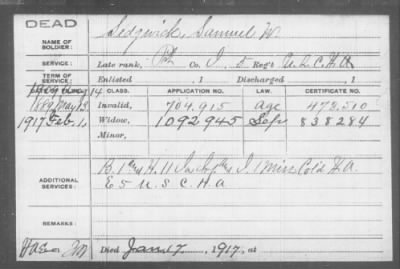 DEAD
Sedgwick, Samuel W
NAME OF SOLDIER:
SERVICE: Late rank, Pvt Co. I, 5 Reg't U.S.C.H.A
TERM OF SERVICE: Enlisted , 1 Discharged , 1
CLASS. APPLICATION NO. LAW. CERTIFICATE NO.
1889 May 13 Invalid, 704.915 Age 473.510
1917 Feb. 1, Widow, 1092945 838284
Minor,
ADDITIONAL SERVICES:
I. 1 Miss Cold H.A.
E 5 U.S.C.H.A
REMARKS:
Died Jan 17, 1917, at